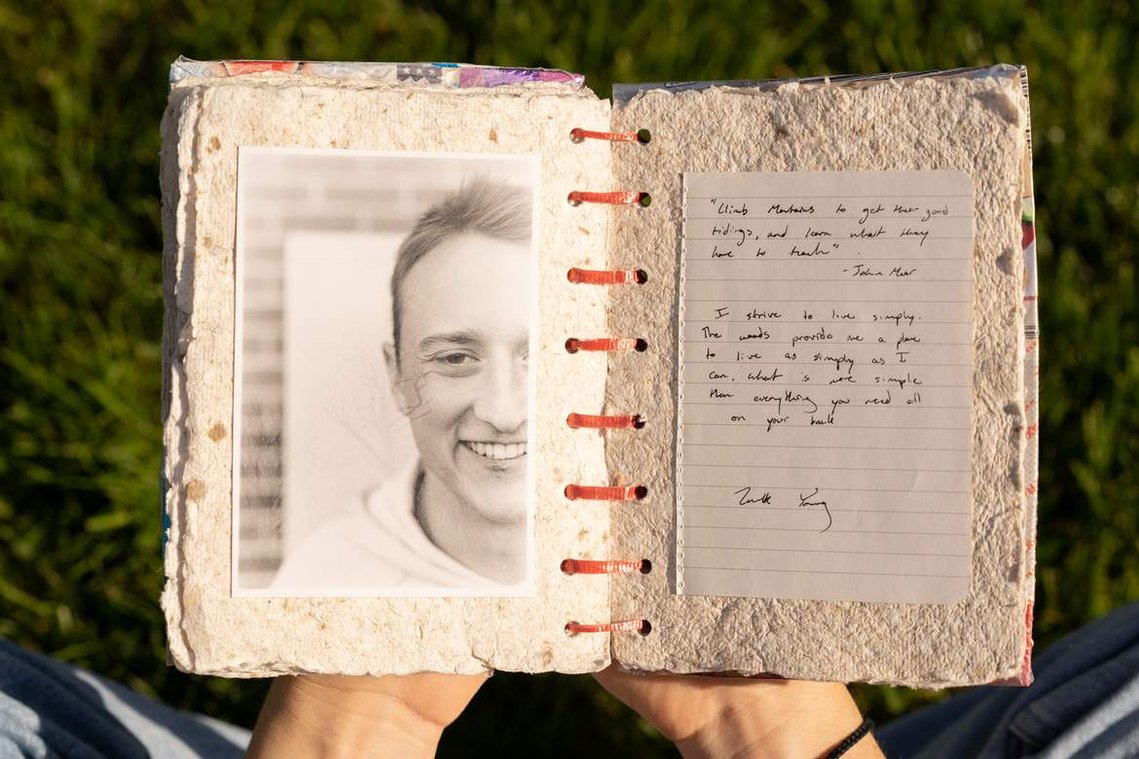 "Climb Mountains to get their good
tidings, and learn what they
have to teach".
- John Muir
I strive to live simply.
The woods provide me a place
to live as simply as I
can. what is more simple
than everything you need all
on your back
Young